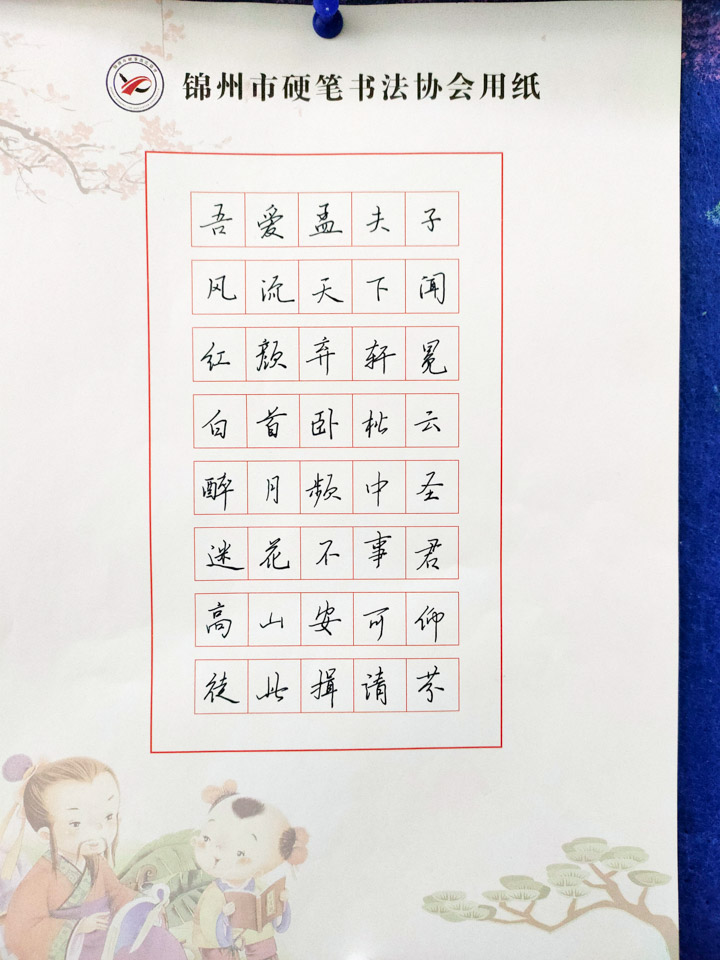 锦州市硬笔书法协会用纸
吾爱孟夫子
风流天下闻
红颜弃轩冕
白首卧松云
醉月频中圣
迷花不事君
高山安可仰
徒此揖请芬